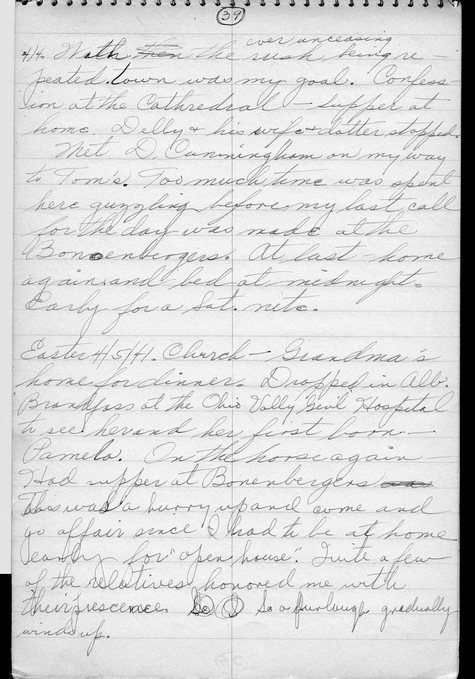 39
ever unceasing
4/4. With then the rush being re-
peated town was my goal. Confess-
ion at the Cathredral - Supper at
home. Delly & his wife & datter stopped.
Met D. Cunningham on my way
to Tom's. Too much time was spent
here guzzling before my last call
for the day was made at the
Bonenbergers. At last - home
again and bed at midnight.
Early for a Sat. nite.
Easter 4/5/41. Church - Grandma's
home for dinner. Dropped in Alb.
at the Ohio Vally Gen'l Hospital
to see her and her first born -
Pamela. On the horse again -
Had supper at Bonenbergers
This was a hurry up and come and
go affair since I had to be at home
early for "open house". Quite a few
of the relatives honored me with
their prescence. So a furlough gradually
winds up.